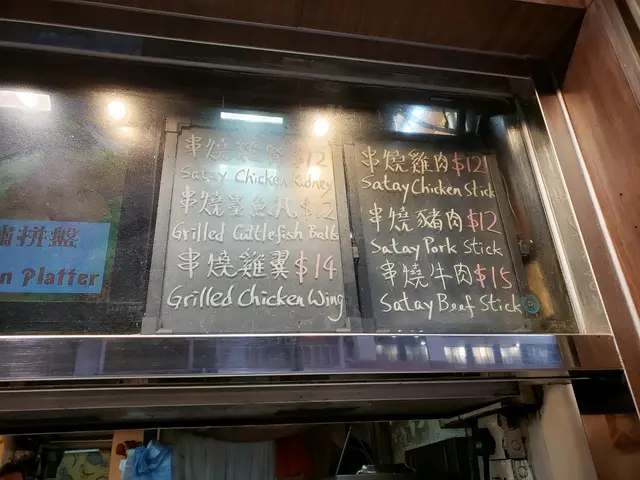 串燒雞腎 $12
Satay Chicken Kidney
串燒墨魚丸 $12
Grilled Cattlefish Balls
串燒雞翼 $14
Grilled Chicken Wing
串燒雞肉 $12
Satay Chicken Stick
串燒豬肉 $12
Satay Pork Stick
串燒牛肉 $15
Satay Beef Stick
拼盤
Platter